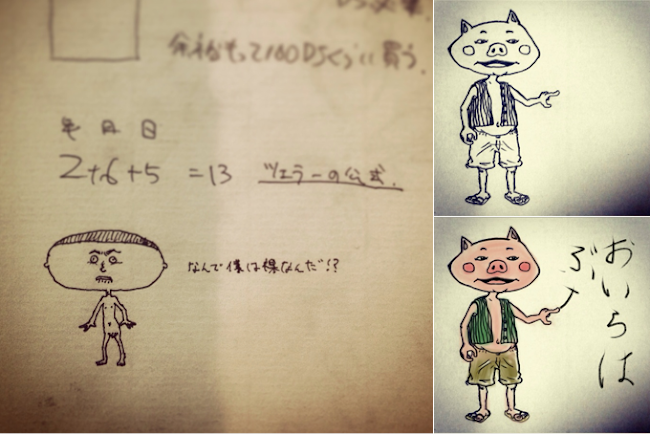 もって100 買う.
年 月 日
2+6+5 =13 ツェラーの公式.
なんで僕は裸なんだ!?
おいらは
ぶ